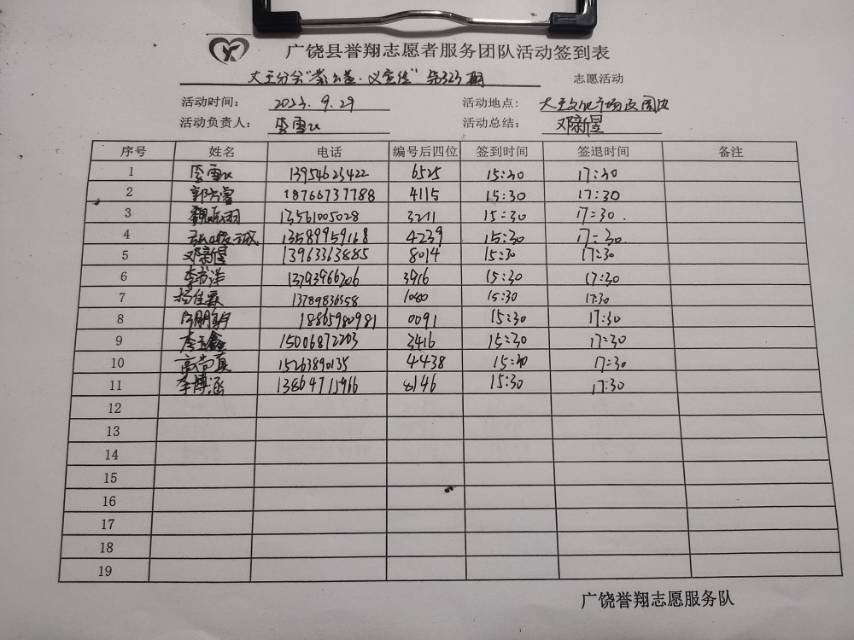 广饶县誉翔志愿者服务团队活动签到表
大王分会“ 公益·义 ”第323期 志愿活动
活动时间： 2023.9.29 活动地点： 大王文化广场
活动负责人： 李雪 活动总结： 邓新星
序号 姓名 电话 编号后四位 签到时间 签退时间 备注
1 李雪 13954623422 6525 15:30 17:30
2 18766737788 4115 15:30 17:30
3 13561005028 3211 15:30 17:30.
4 13589959168 4239 15:30 17:30.
5 邓新星 13963363885 8014 15:30 17:30
6 李 洋 13793966206 3916 15:30 17:30
7 杨佳 15:30 17:30
8 18865980981 0091 15:30 17:30
9 李 鑫 15006872203 3416 15:30 17:30
10 高 真 15263890135 4438 15:30 17:30
11 李博涵 13864711966 8146 15:30 17:30
12
13
14
15
16
17
18
19
广饶誉翔志愿服务队